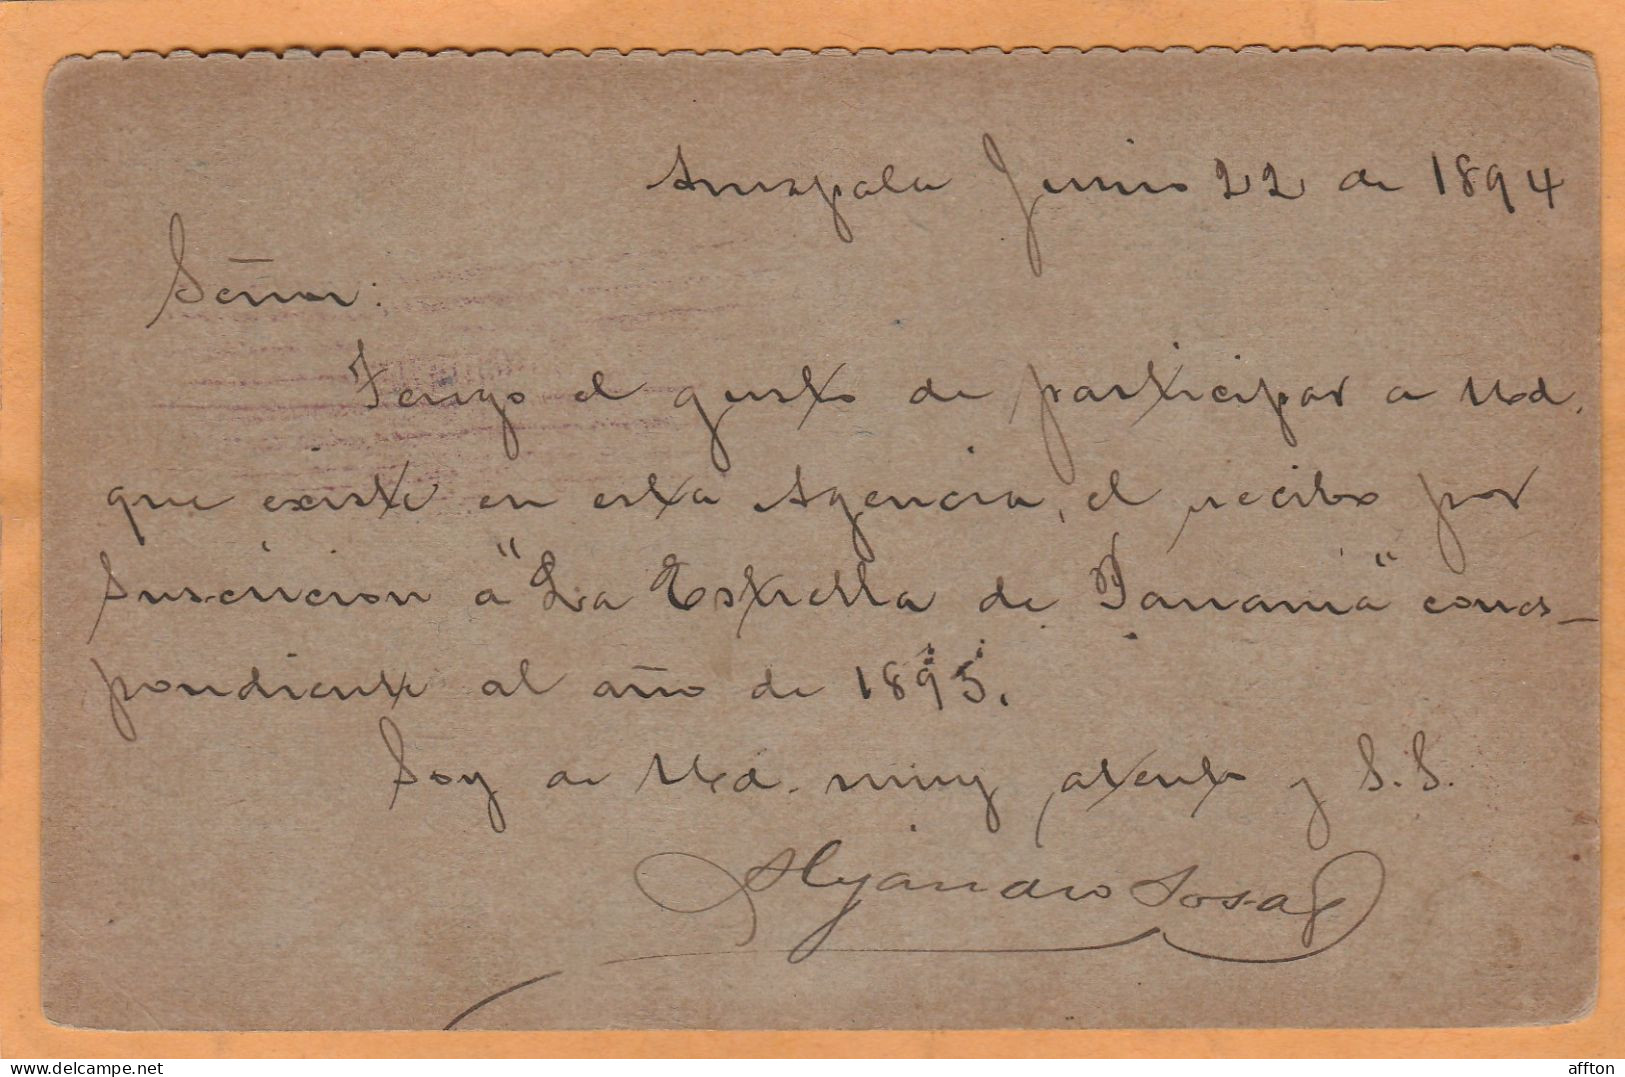 Amapala Junio 22 de 1894
Señor:
Tengo el gusto de participar a Ud.
que existe en esta Agencia, el recibo por
suscricion a "La Estrella de Panamá" corres-
pondiente al año de 1895.
Soy de Ud. muy atento y S.S.
Alejandro Sosa
delcampe.net
affton